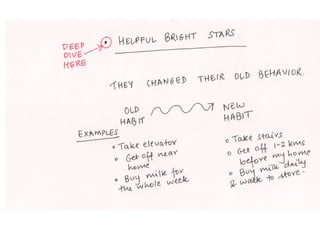 DEEP
DIVE
HERE
HELPFUL BRIGHT STARS.
THEY CHANGED THEIR OLD BEHAVIOR.
OLD
HABIT
NEW
HABIT
EXAMPLES
Take elevator
Get off near
home
Buy milk for
the whole week
Take stairs
Get off 1-2 kms
before my home
Buy milk daily
& walk to store.